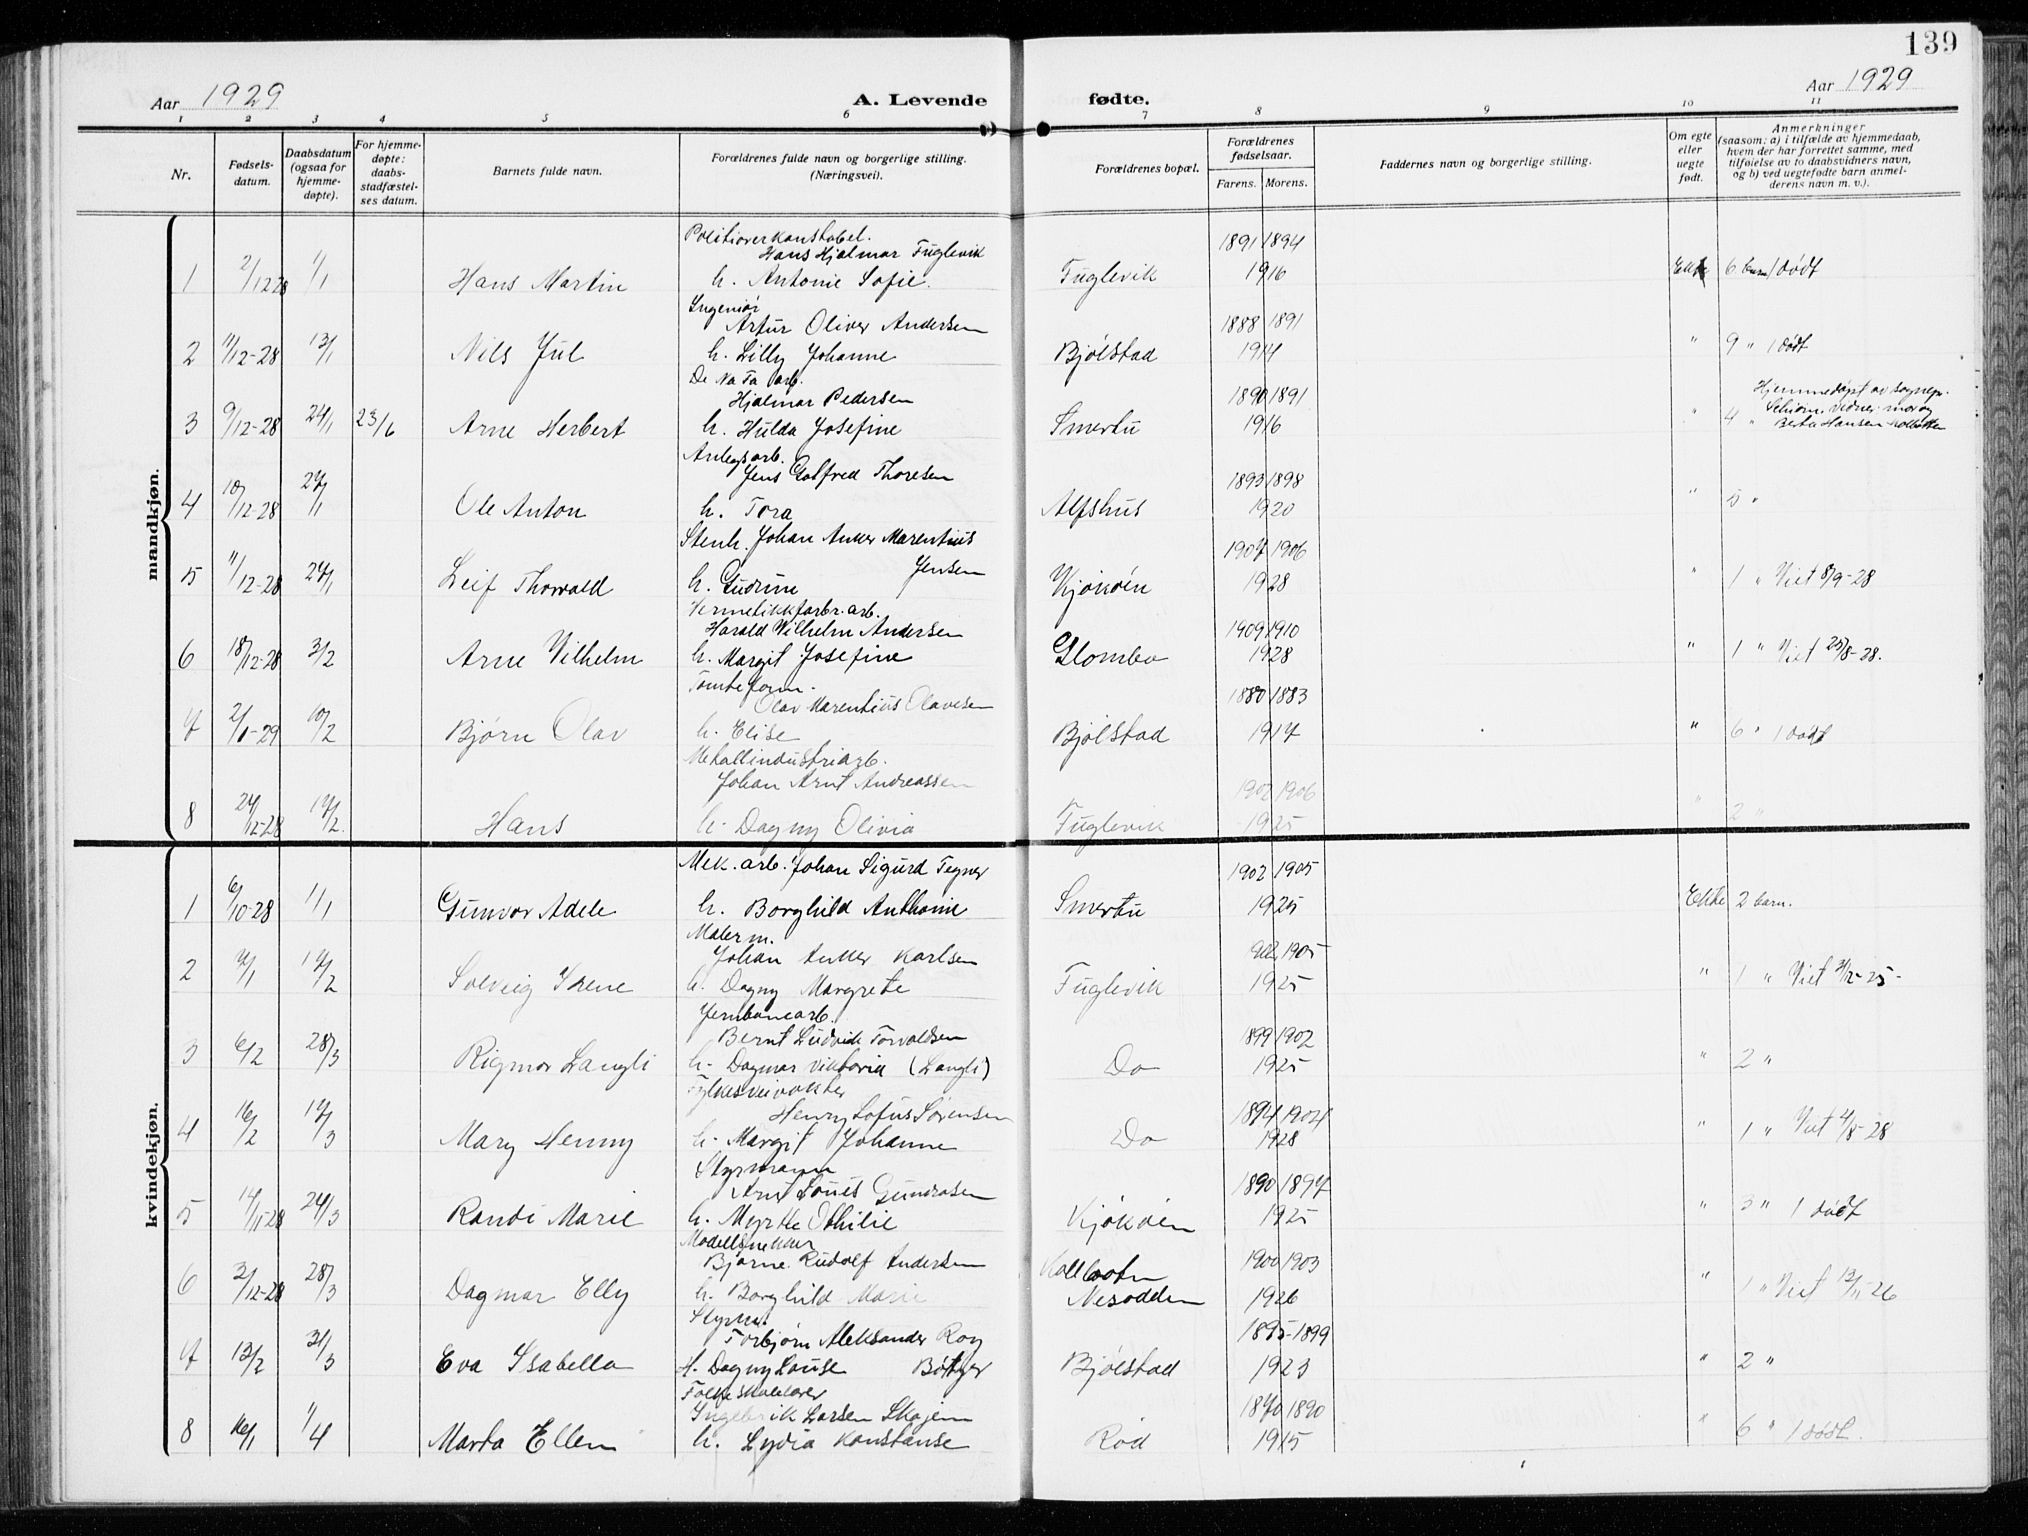 139
Aar 1929
A. Levende
fødte.
Aar 1929
1 2 3 4 5 6 7 8 9 10 11
Nr.
Fødsels-
datum.
Daabsdatum
(ogsaa for
hjemme-
døpte).
For hjemme-
døpte:
daabs-
stadfæstel-
ses datum.
Barnets fulde navn.
Forældrenes fulde navn og borgerlige stilling.
(Næringsvei).
Forældrenes bopæl.
Forældrenes
fødselsaar.
Farens. Morens.
Faddernes navn og borgerlige stilling.
Om egte
eller
uegte
født.
Anmerkninger
(saasom: a) i tilfælde av hjemmedaab,
hvem der har forrettet samme, med
tilføielse av to daabsvidners navn,
og b) ved uegtefødte barn anmel-
derens navn m. v.).
mandkjøn.
Politioverkonstabel.
Hans Hjalmar Fuglevik 1891 1894
1 2/12 28 1/1 Hans Martin h. Antonie Sofie. Fuglevik 1916 Ekte 6 barn 1 dødt
Ingeniør
Artur Oliver Andersen 1888 1891
2 11/12-28 13/1 Nils Jul h. Lilly Johanne Bjølstad 1914 " 9 " 1 dødt
De No Fa arb.
Hjalmar Pedersen 1890 1891 Hjemmedøpt av sognepr.
3 9/12-28 24/1 23/6 Arne Herbert h. Hulda Josefine Smertu 1916 " 4 "
Anlegsarb.
Jens Gotfred Thoresen 1893 1898
4 10/12-28 27/1 Ole Anton h. Tora Alfshus 1920 " 5 "
Stenh. Johan Anker Marentius 1907 1906
Jensen
5 11/12-28 27/1 Leif Thorvald h. Gudrun Kjøkøen 1928 " 1 " Viet 8/9-28
Hermetikkfabr. arb.
Harald Wilhelm Andersen 1909 1910
6 18/12-28 3/2 Arne Vilhelm h. Margit Josefine Glombo 1928 " 1 " Viet 25/8-28.
Tomteform.
Olav Marentius Olavesen 1880 1883
7 2/1-29 10/2 Bjørn Olav h. Elise Bjølstad 1917 " 6 " 1 dødt
Metallindustriarb.
Johan Arnt Andreassen 1902 1906
8 24/12-28 17/2. Hans h. Dagny Olivia Fuglevik 1925 " 2 "
kvindekjøn.
Mek. arb. Johan Sigurd Tegner 1902 1905
1 6/10-28 1/1 Gunvor Adele h. Borghild Anthonie Smertu 1925 Ekte 2 barn.
Malerm.
Johan Anker Karlsen 1905
2 7/1 17/2 Solveig Irene h. Dagny Margrete Fuglevik 1925 " 1 " Viet 3/12-25-
Jernbanearb.
Bernt Ludvik Torvaldsen 1899 1902
3 6/2 28/3 Rigmor Langli h. Dagmar Viktoria (Langli) Do 1925 " 2 "
Fylkesveivokter
Henry Lofus Sørensen 1894 1904
4 16/2 17/3 Mary Henny h. Margit Johanne Do 1928 " 1 " Viet 4/8-28
Styrmann
Arnt Louis Gundersen 1890 1897
5 14/11-28 24/3 Randi Marie h. Myrtle Othilie Kjøkøen 1925 " 3 " 1 dødt
Modellsnekker
Bjarne Rudolf Andersen Kolbotn 1900 1903
6 3/12-28 28/3 Dagmar Elly h. Borghild Marie Nesodden 1926 " 1 " Viet 13/11-26
Styrm.
Torbjørn Aleksander Roy 1895-1899
7 13/2 31/3 Eva Isabella H. Dagny Louise Bøtger Bjølstad 1923 " 2 "
Folkeskolelærer
Ingebrik Larsen Skajem 1870 1890
8 16/1 1/4 Marta Ellen h. Lydia Konstanse Rød 1915 " 6 " 1 dødt.